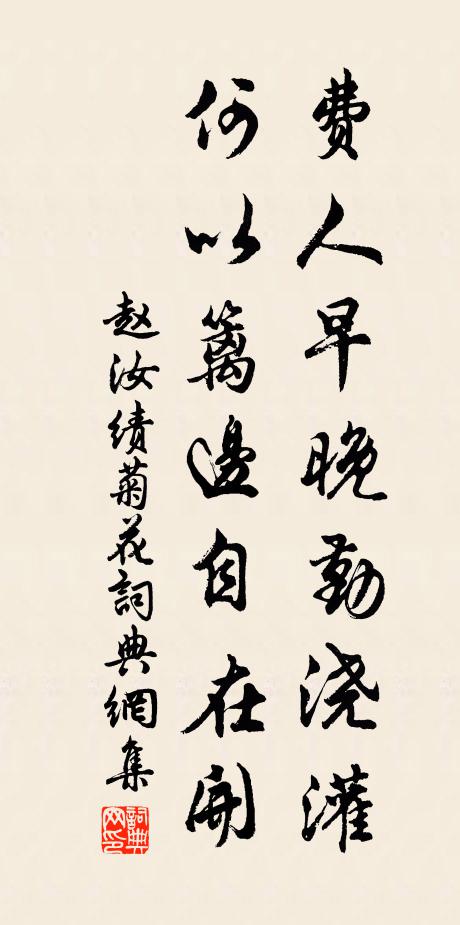 费人早晚勤浇灌
何以篱邊自在開
赵汝绩菊花詞典網集
詞典网印